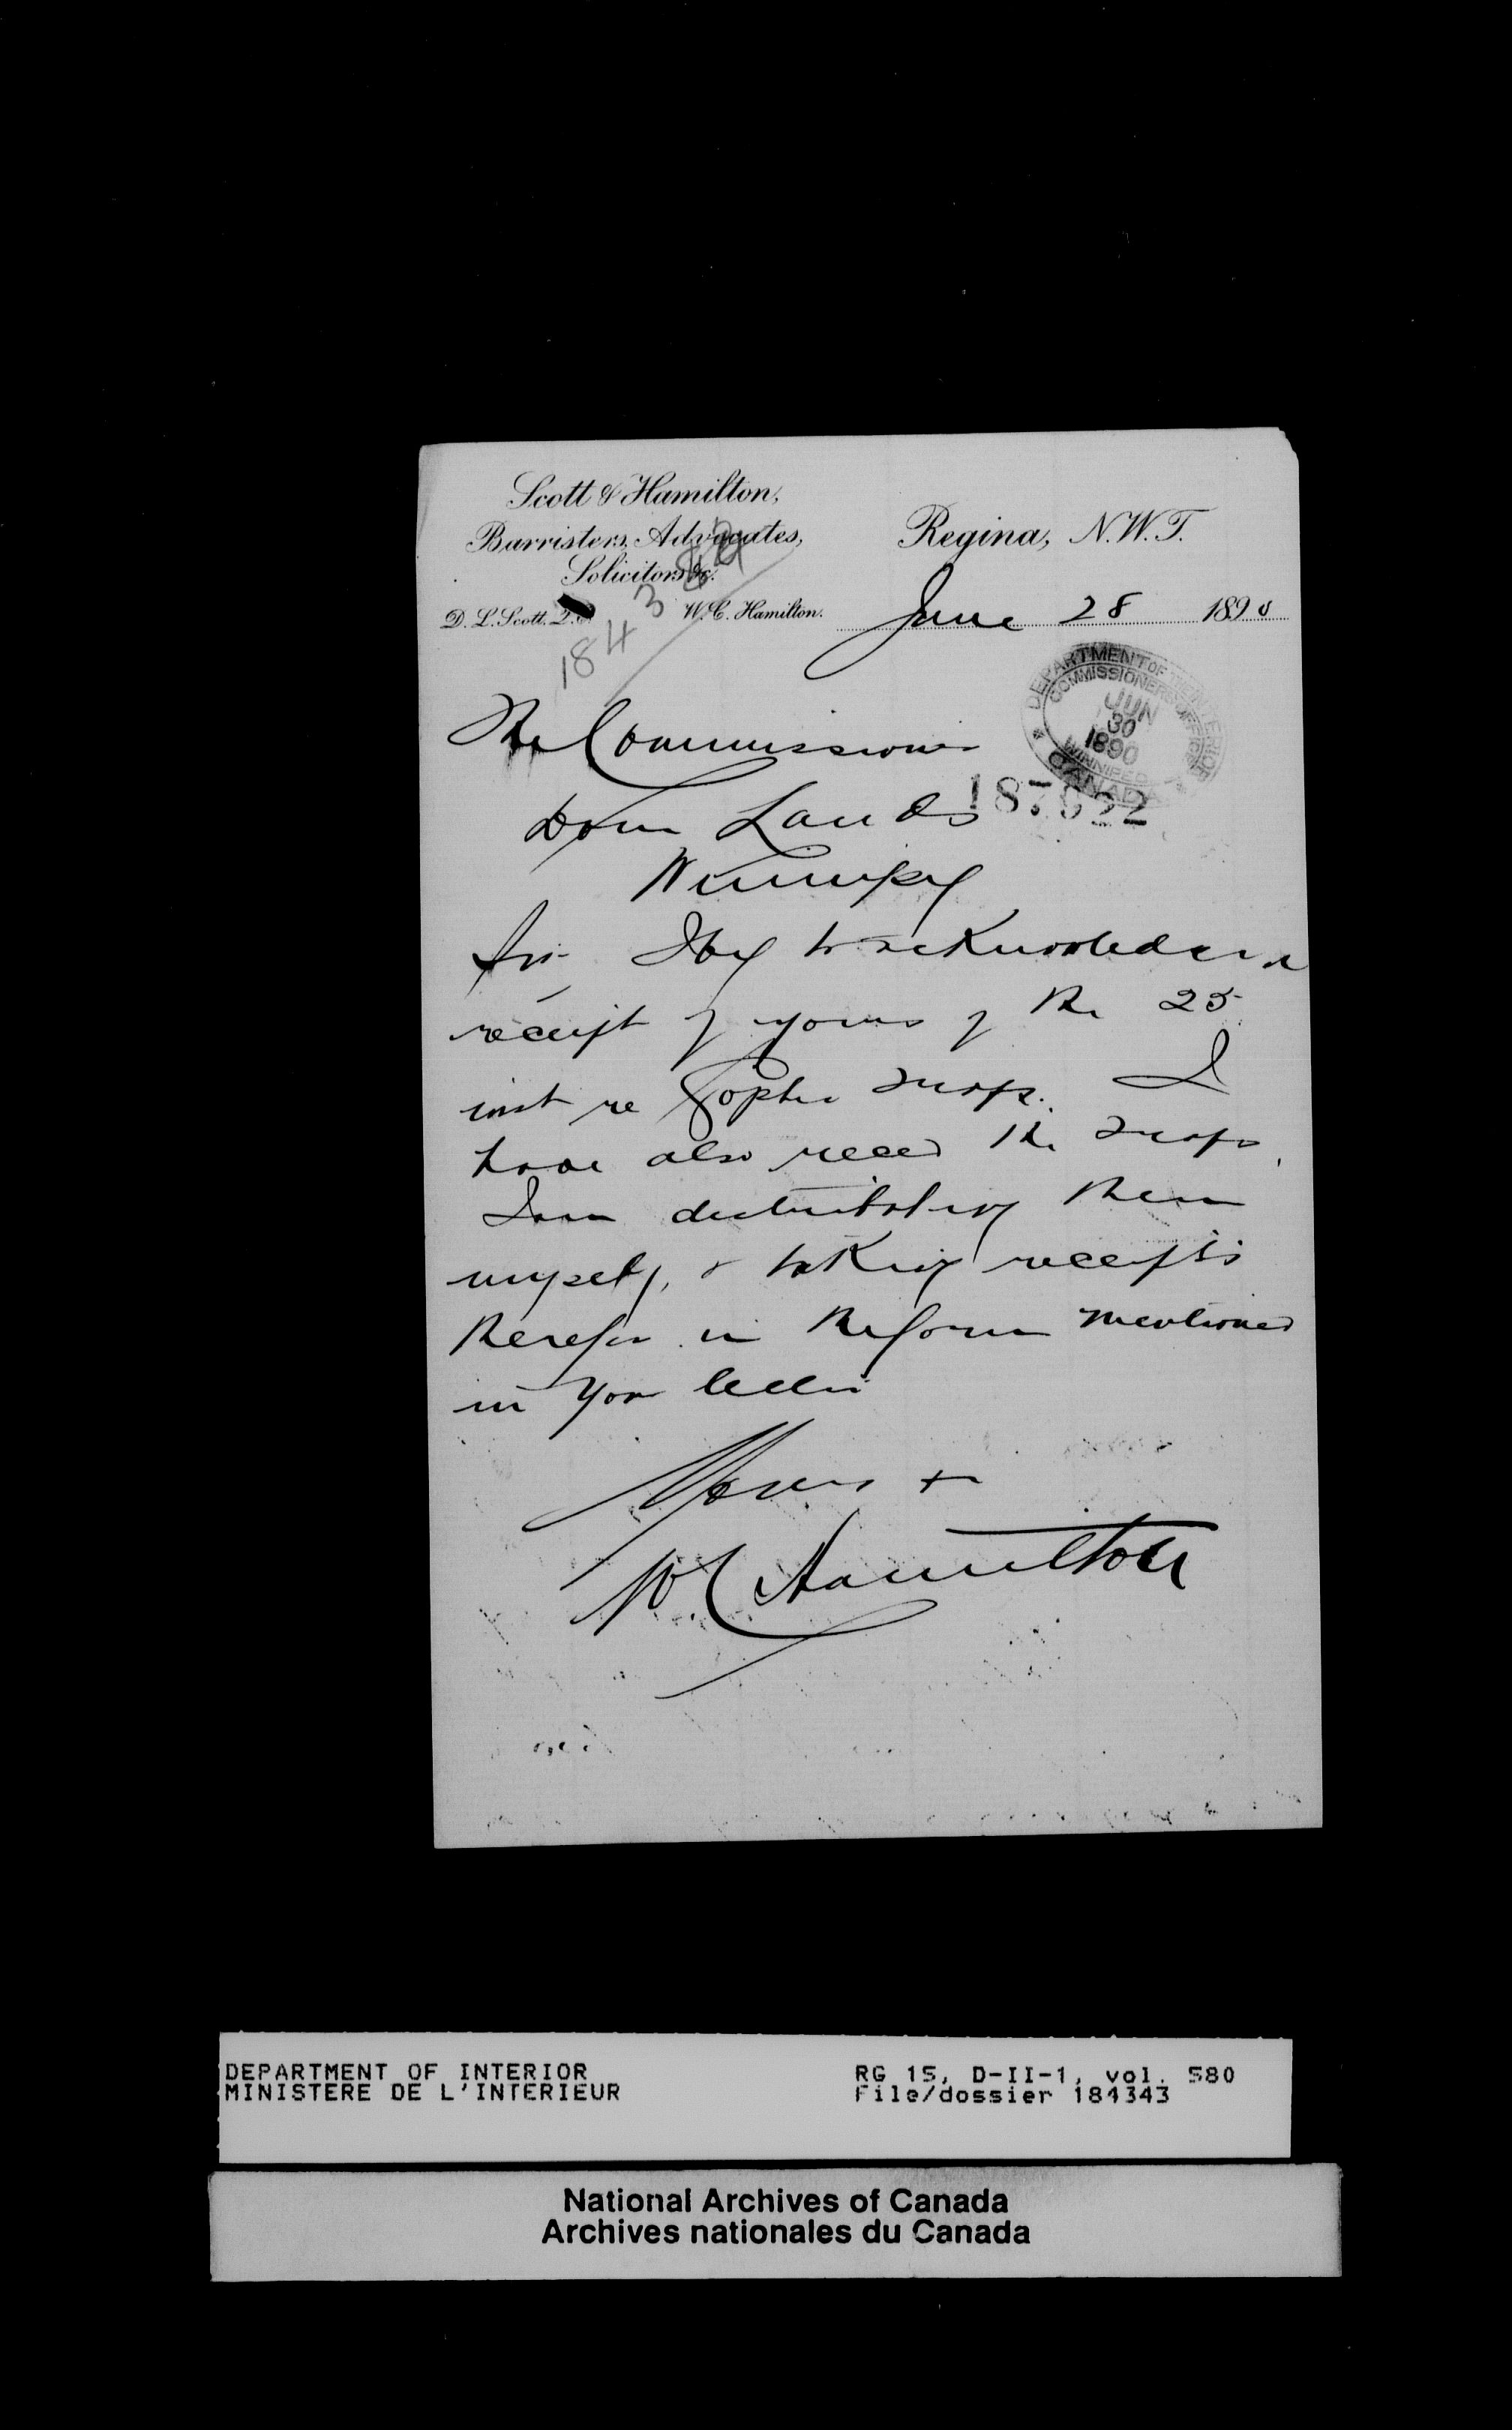 Scott & Hamilton,
Barristers, Advocates,
Solicitors &c.
D. L. Scott, Q.C. W. C. Hamilton.
Regina, N.W.T.
June 28 1890
DEPARTMENT OF THE INTERIOR
COMMISSIONER'S OFFICE
JUN
30
1890
WINNIPEG
CANADA
187622
The Commissioner
Dom Lands
Winnipeg
Sir I beg to acknowledge
receipt of yours of the 25
inst re Gopher snaps. I
have also recd the snaps
I am distributing them
myself, & taking receipts
therefor in the form mentioned
in your letter
Yours +
W C Hamilton
DEPARTMENT OF INTERIOR
MINISTERE DE L'INTERIEUR
RG 15, D-II-1, vol. 580
File/dossier 184343
National Archives of Canada
Archives nationales du Canada